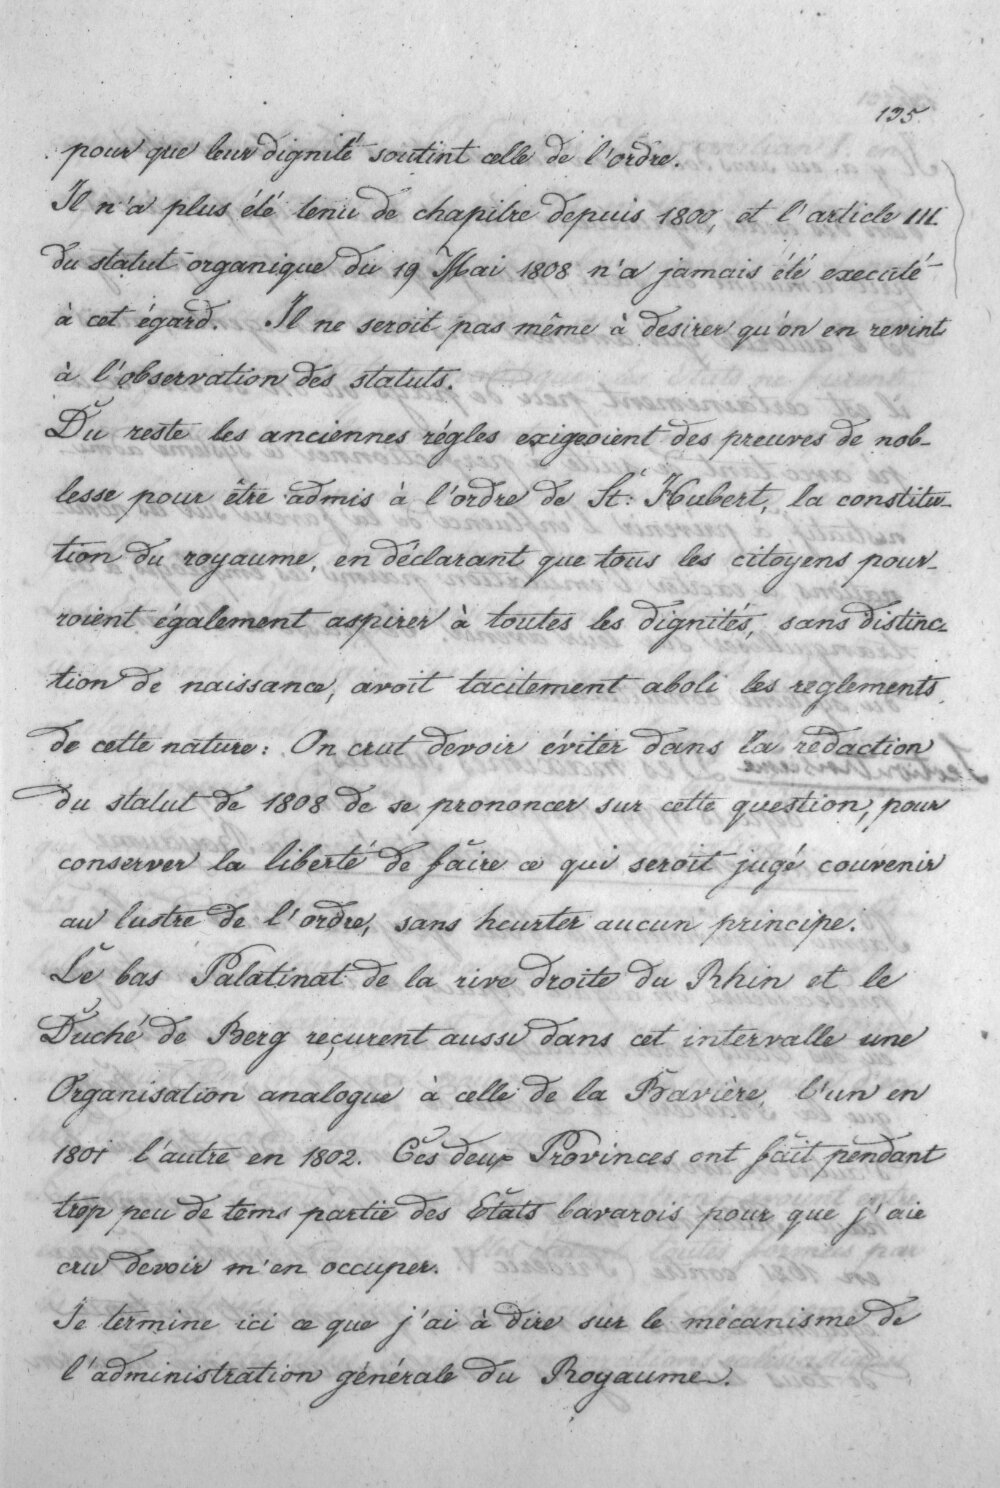 135.
pour que leur dignité soutint celle de l'ordre.
Il n'a plus été tenu de chapitre depuis 1800, et l'article III.
du statut organique du 19 Mai 1808 n'a jamais été executé
à cet égard. Il ne seroit pas même à desirer qu'on en revint
à l'observation des statuts.
Du reste les anciennes régles exigeoient des preuves de nob-
lesse pour être admis à l'ordre de St. Hubert, la constitu-
tion du royaume, en déclarant que tous les citoyens pour-
roient également aspirer à toutes les dignités, sans distinc-
tion de naissance, avoit tacitement aboli les reglements
de cette nature: On crut devoir éviter dans la rédaction
du statut de 1808 de se prononcer sur cette question, pour
conserver la liberté de faire ce qui seroit jugé couvenir
au lustre de l'ordre, sans heurter aucun principe.
Le bas Palatinat de la rive droite du Rhin et le
Duché de Berg reçurent aussi dans cet intervalle une
Organisation analogue à celle de la Bavière, l'un en
1801 l'autre en 1802. Ces deux Provinces ont fait pendant
trop peu de tems partie des Etats bavarois pour que j'aie
cru devoir m'en occuper.
Je termine ici ce que j'ai à dire sur le mécanisme de
l'administration générale du Royaume.